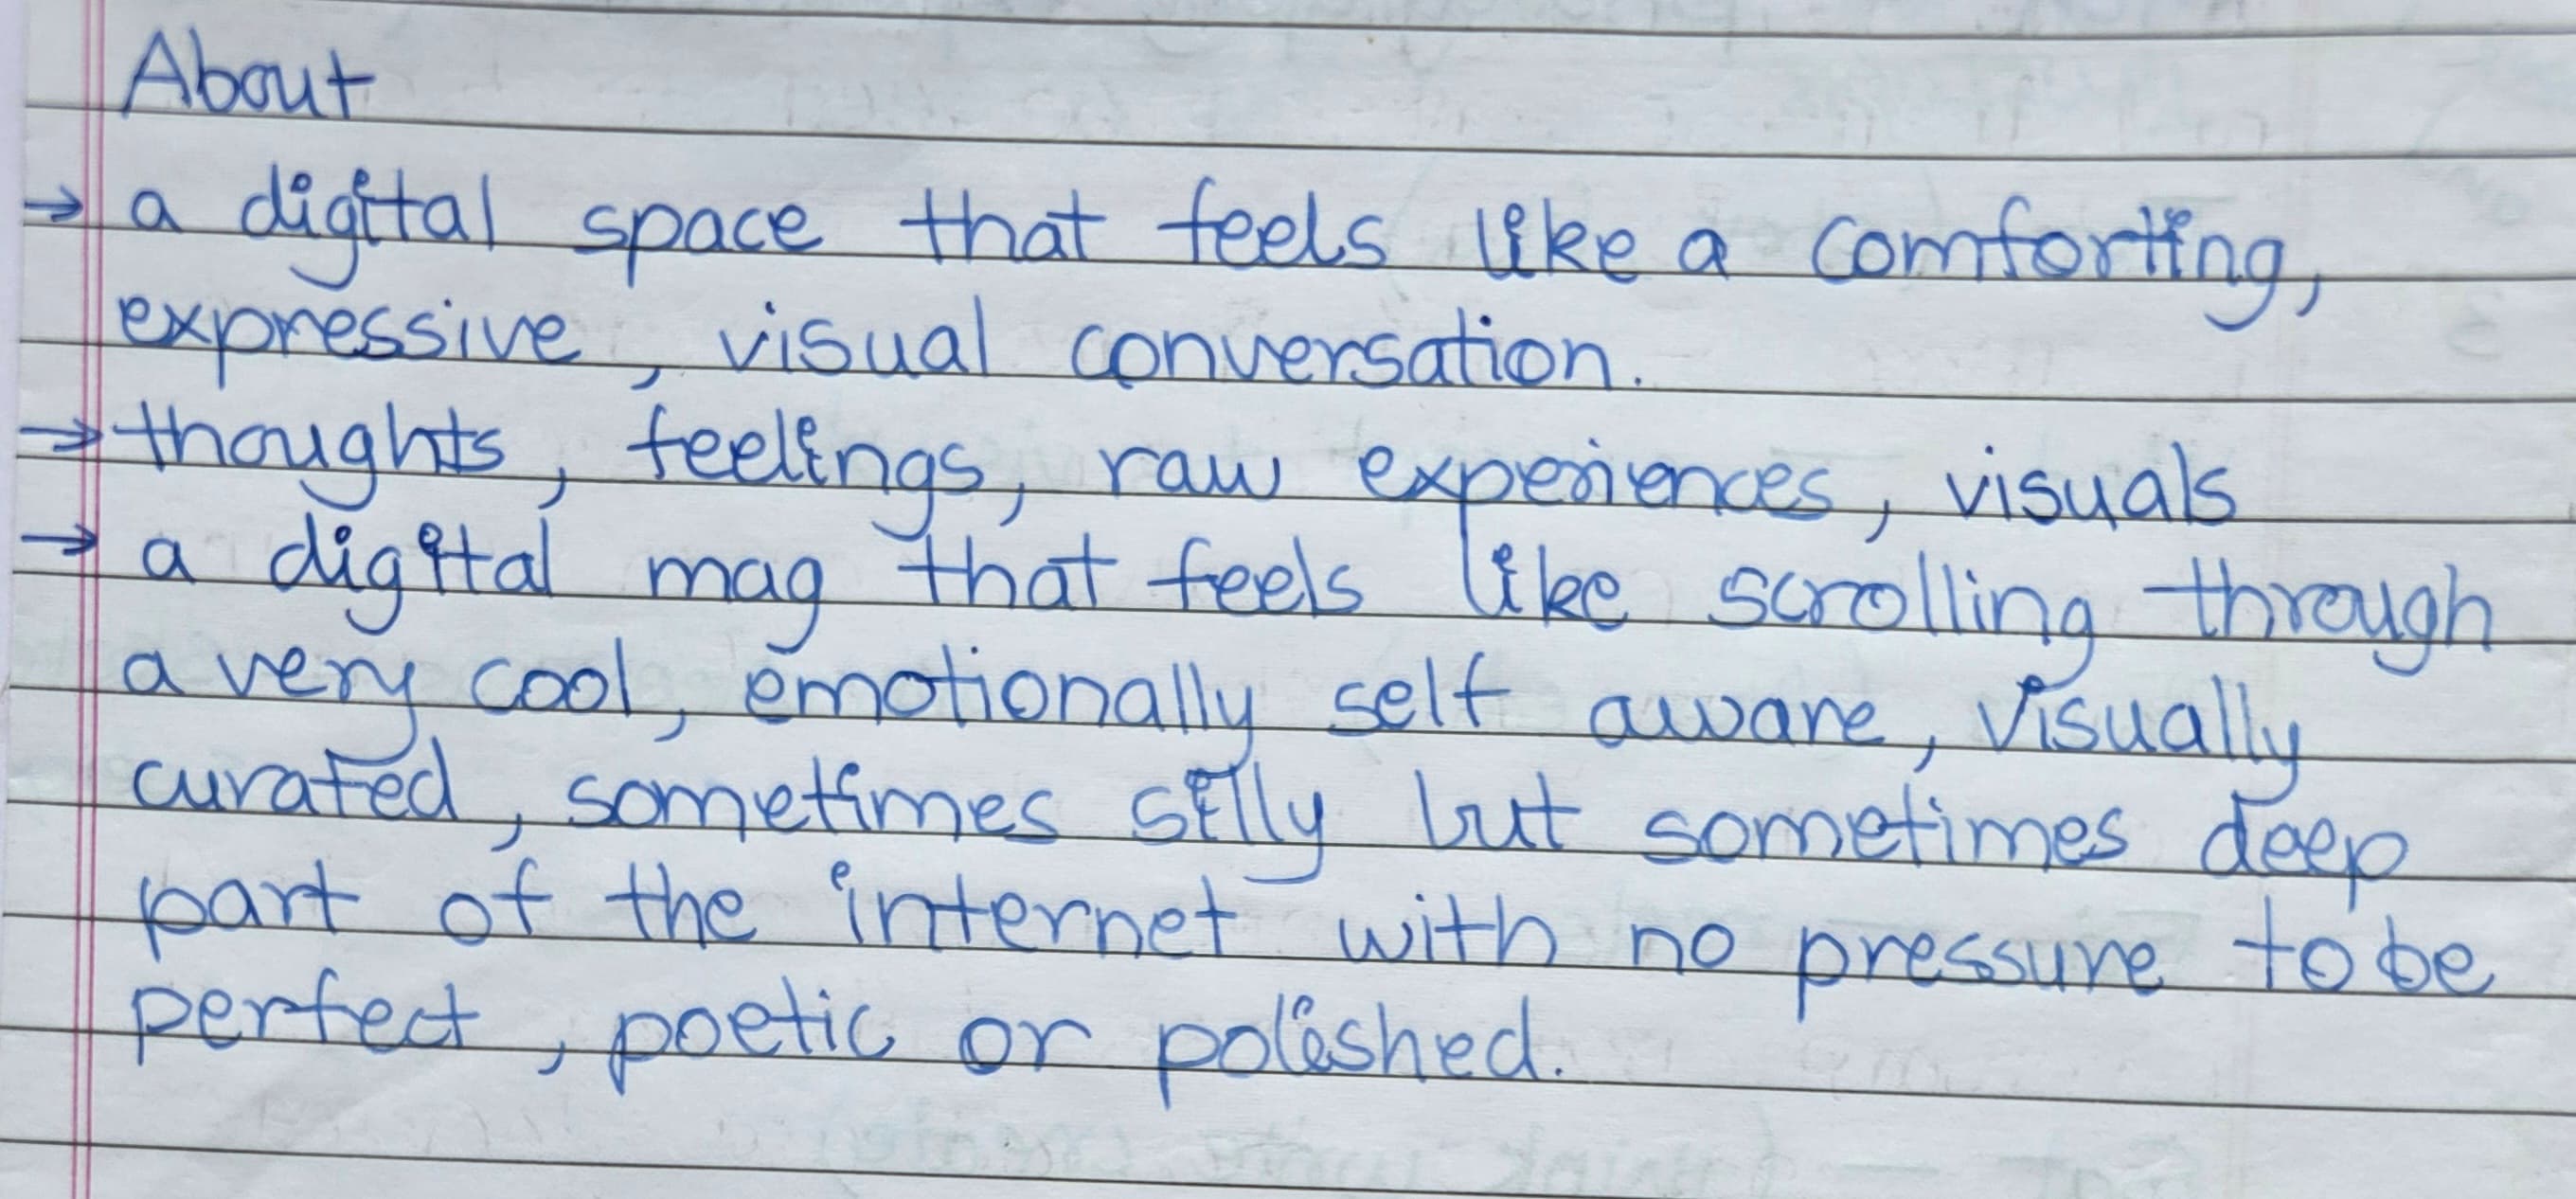 About
→ a digital space that feels like a comforting,
expressive, visual conversation.
→ thoughts, feelings, raw experiences, visuals
→ a digital mag that feels like scrolling through
a very cool, emotionally self aware, visually
curated, sometimes silly but sometimes deep
part of the internet with no pressure to be
perfect, poetic or polished.